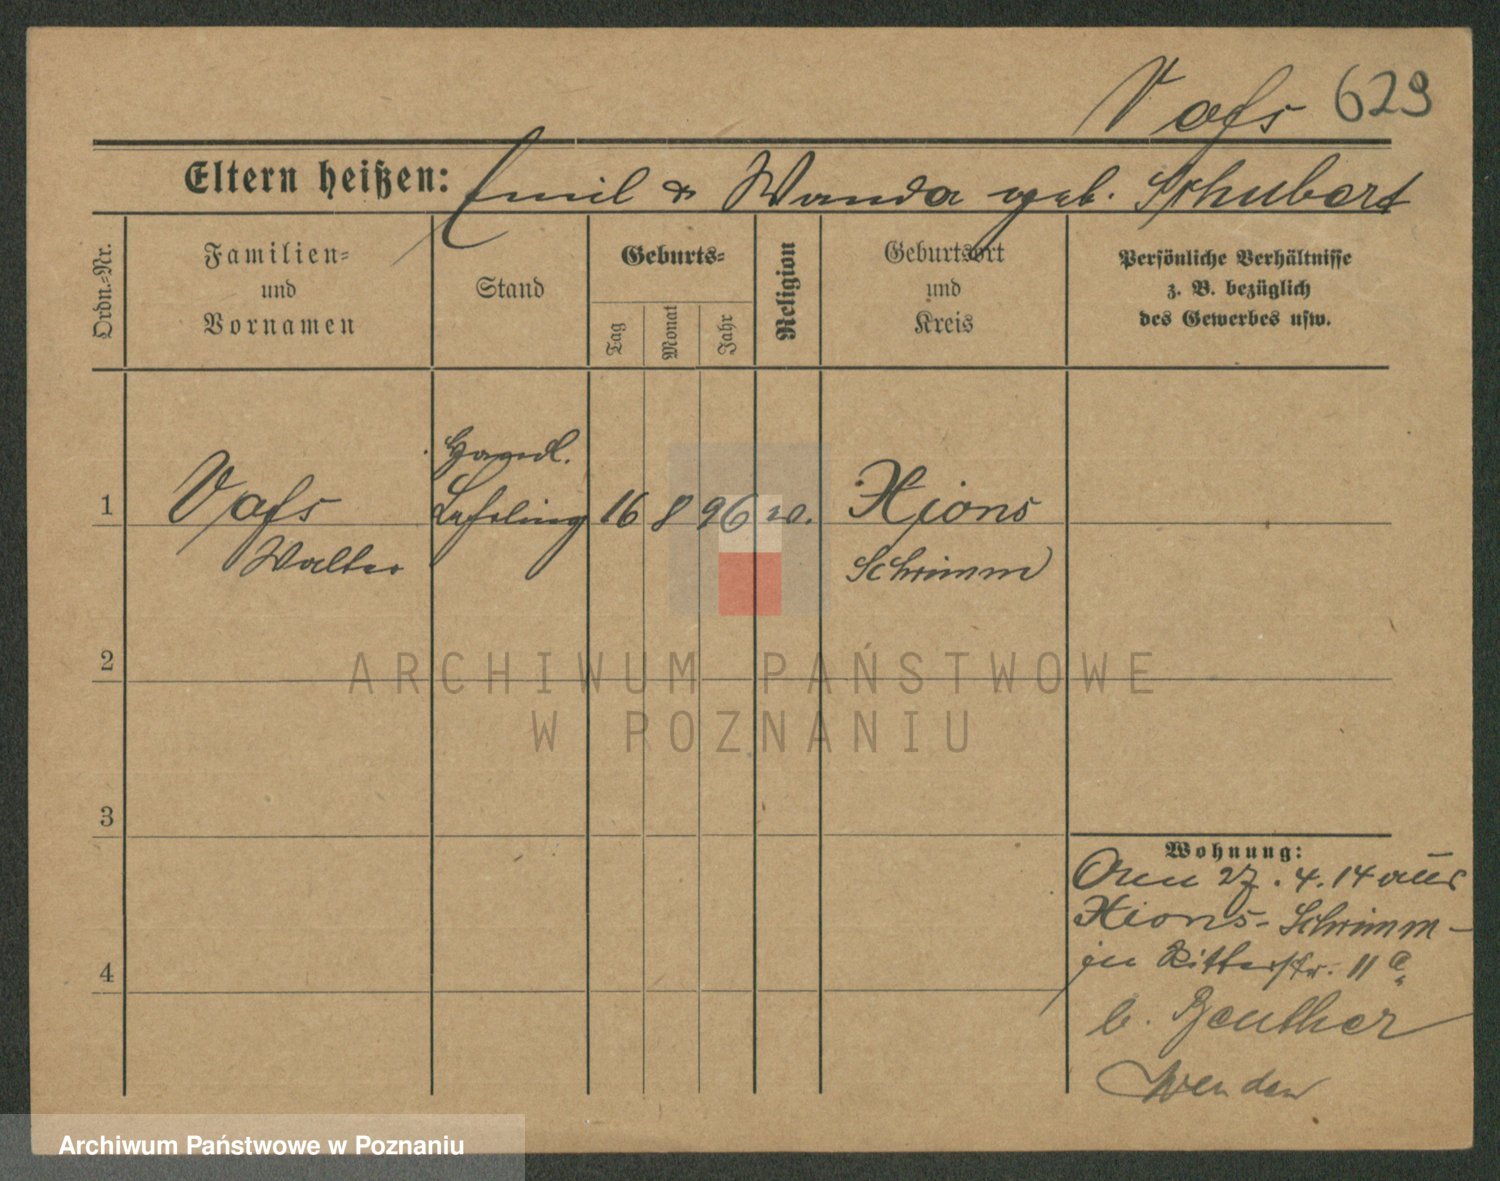 Voſs 629
Eltern heißen: Emil & Wanda geb. Schubert
Ordn.-Nr.
Familien-
und
Vornamen
Stand
Geburts-
Tag
Monat
Jahr
Religion
Geburtsort
und
Kreis
Persönliche Verhältnisse
z. B. bezüglich
des Gewerbes usw.
Handl.
1 Voſs Lehrling 16 8 96 ev. Xions
Walter Schrimm
2
ARCHIWUM PAŃSTWOWE
W POZNANIU
3
Wohnung:
27.4.14 aus
Xions-Schrimm-
in Ritterstr. 11a
b. Beuther
4
Archiwum Państwowe w Poznaniu